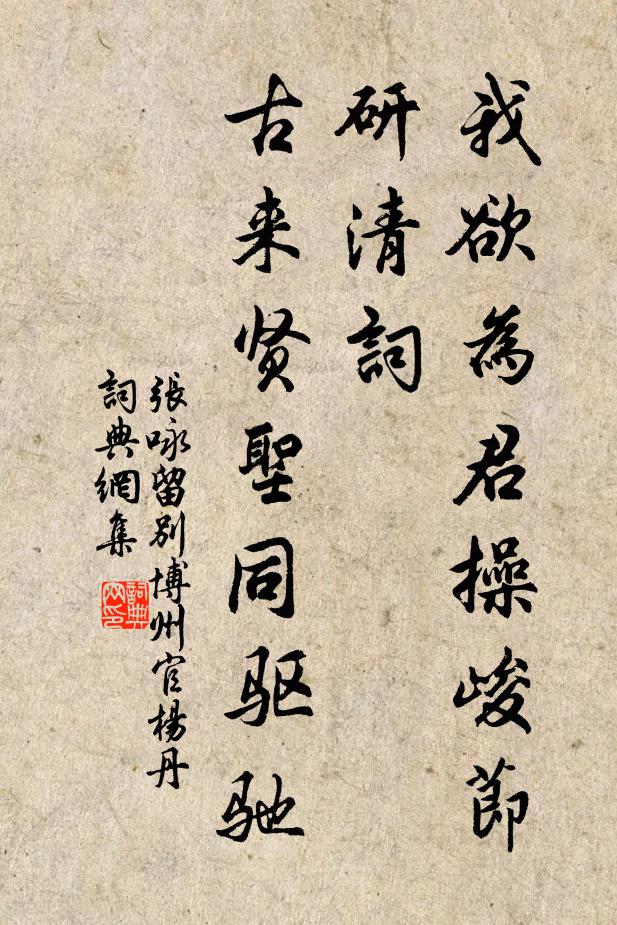 我欲為君操峻節
研清詞
古来贤聖同驱驰
張咏留别博州官楊丹
詞典網集
詞典網印